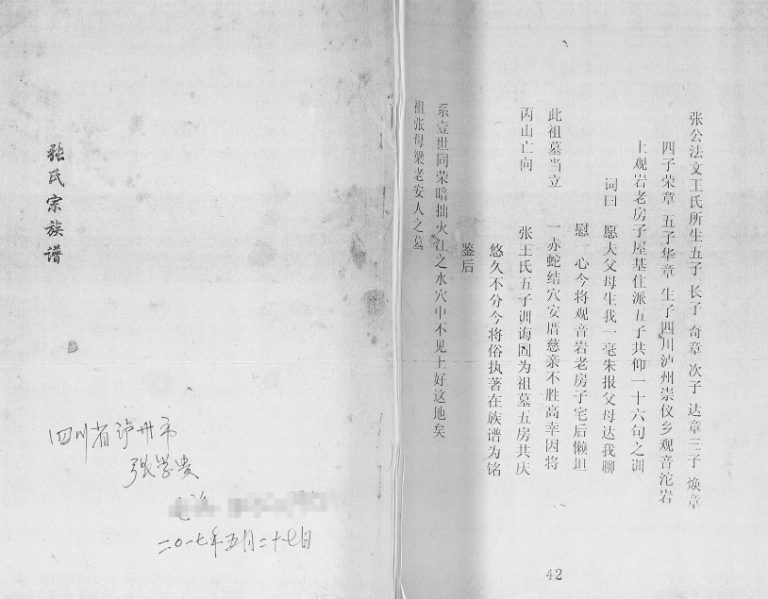 张公法文王氏所生五子 长子 奇章 次子 达章三子 焕章
四子荣章 五子华章 生了四川泸州崇仪乡观音沱岩
上观岩老房子屋基住派五子共仰一十六句之训
词曰 愿夫父母生我一毫朱报父母达我聊
慰一心今将观音岩老房子宅后懒坦
此祖墓当立 一赤蛇结穴安厝慈亲不胜高幸因将
丙山亡向 张王氏五子训诲国为祖墓五房共庆
悠久不分今将俗执著在族谱为铭
鉴后
系壹世同荣暗拙火江之水穴中不见土好这地矣
祖张母梁老安人之墓
42
張氏宗族谱
四川省泸州市
张学贵
电话
二〇一七年五月二十七日